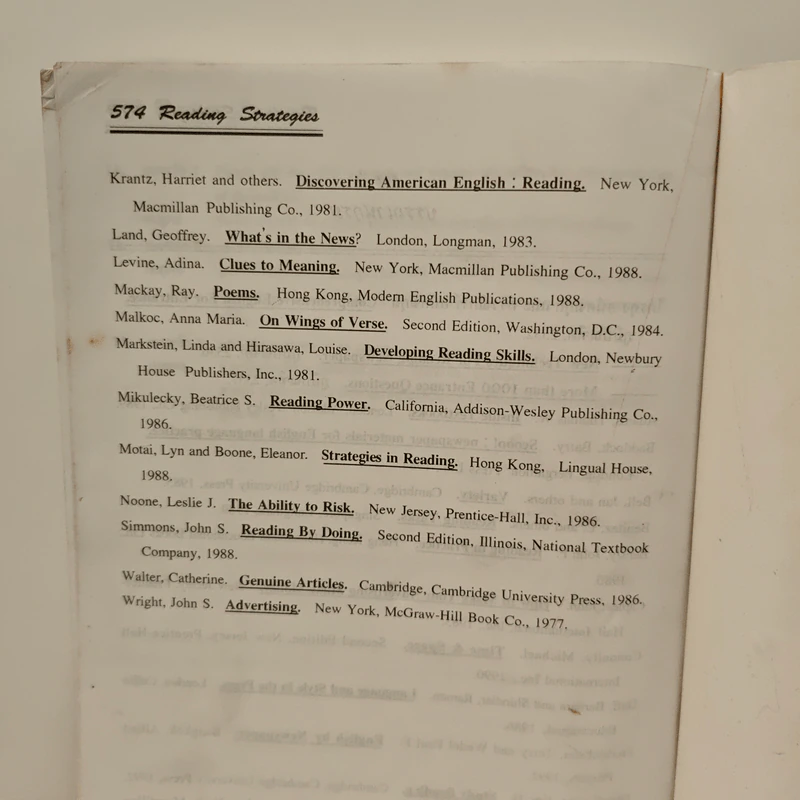 574 Reading Strategies
Krantz, Harriet and others. Discovering American English : Reading. New York,
Macmillan Publishing Co., 1981.
Land, Geoffrey. What's in the News? London, Longman, 1983.
Levine, Adina. Clues to Meaning. New York, Macmillan Publishing Co., 1988.
Mackay, Ray. Poems. Hong Kong, Modern English Publications, 1988.
Malkoc, Anna Maria. On Wings of Verse. Second Edition, Washington, D.C., 1984.
Markstein, Linda and Hirasawa, Louise. Developing Reading Skills. London, Newbury
House Publishers, Inc., 1981.
Mikulecky, Beatrice S. Reading Power. California, Addison-Wesley Publishing Co.,
1986.
Motai, Lyn and Boone, Eleanor. Strategies in Reading. Hong Kong, Lingual House,
1988.
Noone, Leslie J. The Ability to Risk. New Jersey, Prentice-Hall, Inc., 1986.
Simmons, John S. Reading By Doing. Second Edition, Illinois, National Textbook
Company, 1988.
Walter, Catherine. Genuine Articles. Cambridge, Cambridge University Press, 1986.
Wright, John S. Advertising. New York, McGraw-Hill Book Co., 1977.